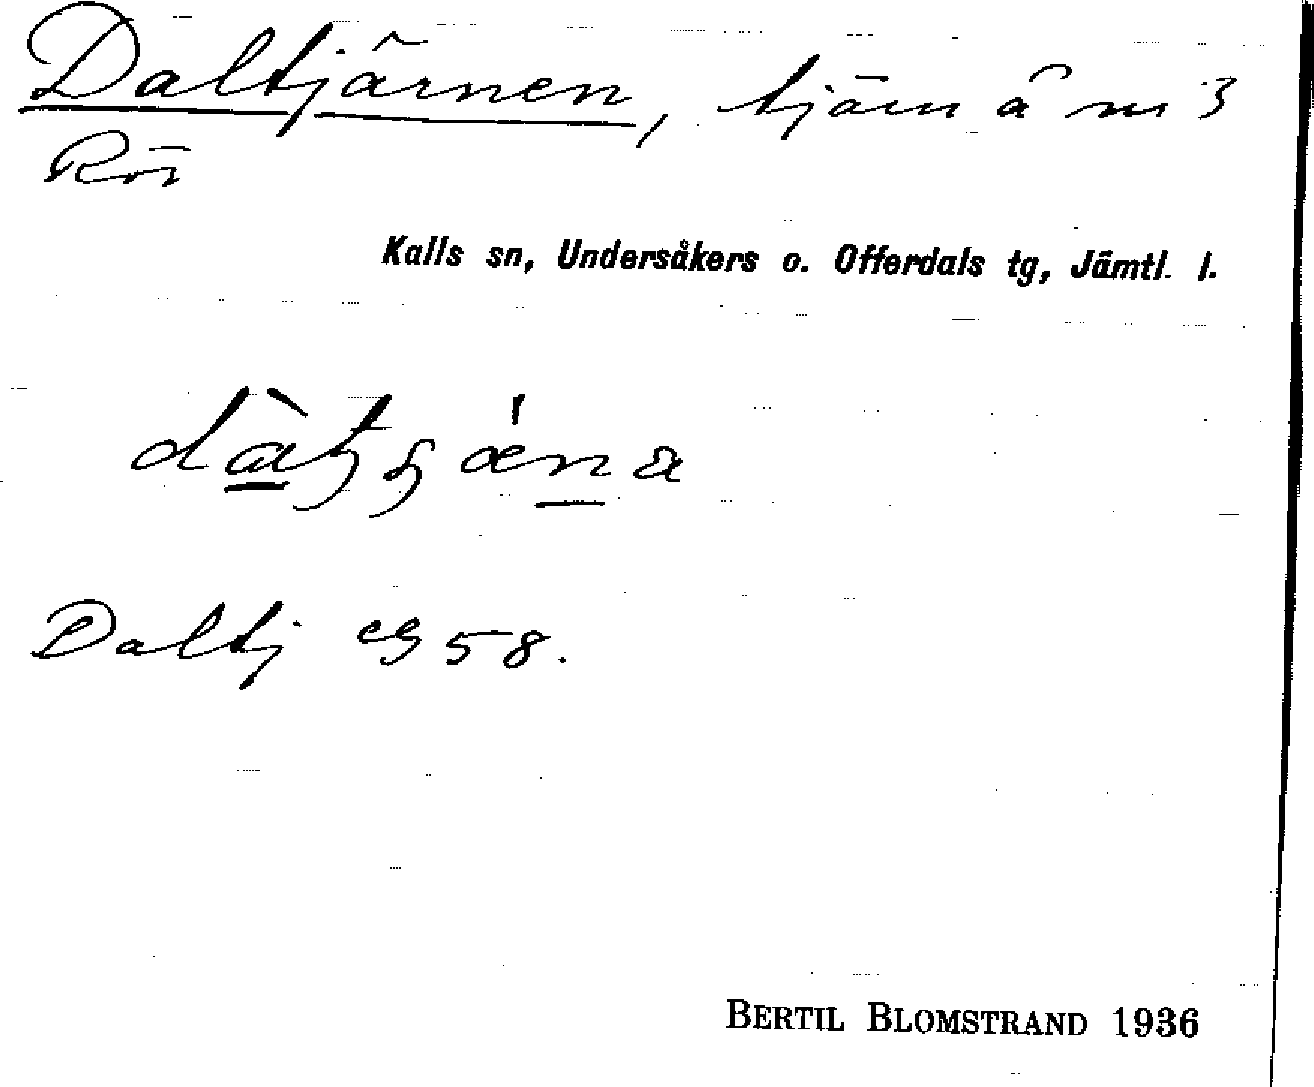 Daltjärnen, tjärn å nr 3
Röi
Kalls sn, Undersåkers o. Offerdals tg, Jämtl. l.
Daltj eG 58.
BERTIL BLOMSTRAND 1936